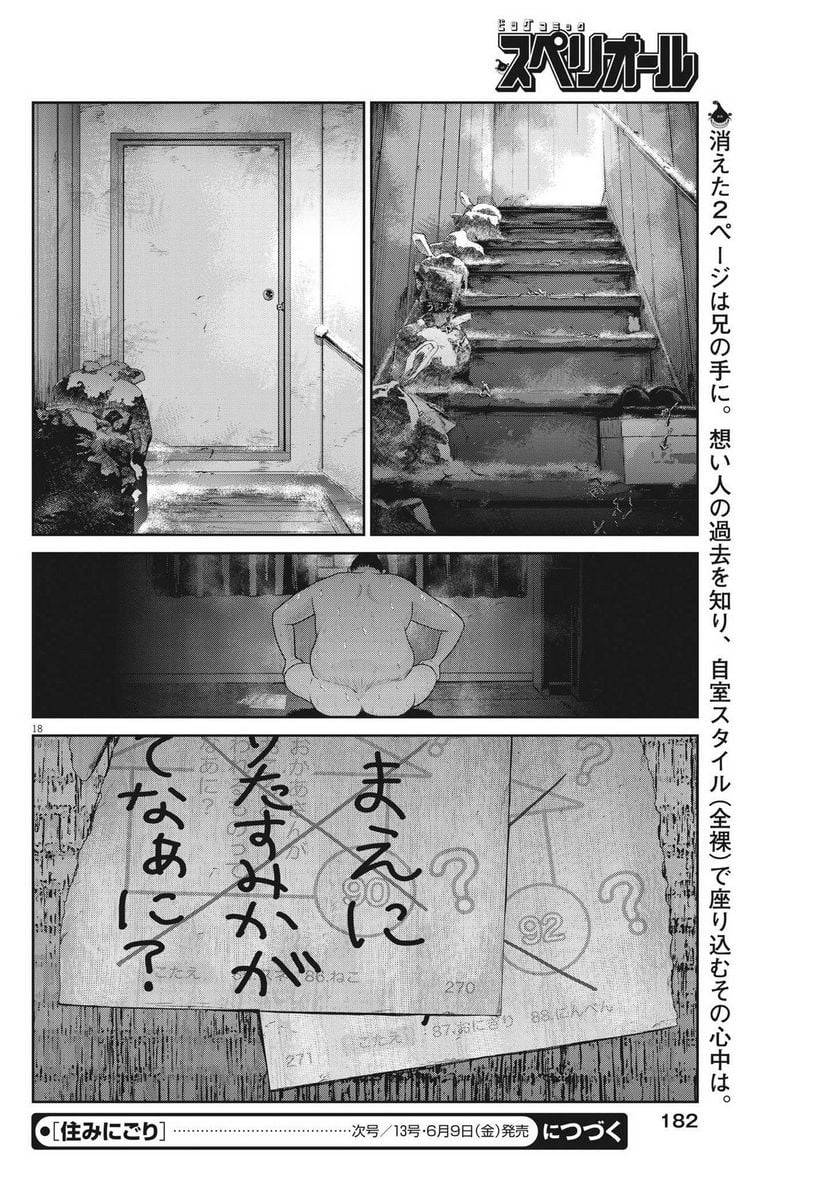 ビッグコミック
スペリオール
消えた2ページは兄の手に。想い人の過去を知り、自室スタイル(全裸)で座り込むその心中は。
18
まえに
りたすみかが
てなあに?
おかあさんが
なあに?
90
92
?
?
?
こたえ
86.ねこ
270
こたえ:87.おにぎり 88.にんべん
271
182
●[住みにごり]……次号/13号・6月9日(金)発売 につづく